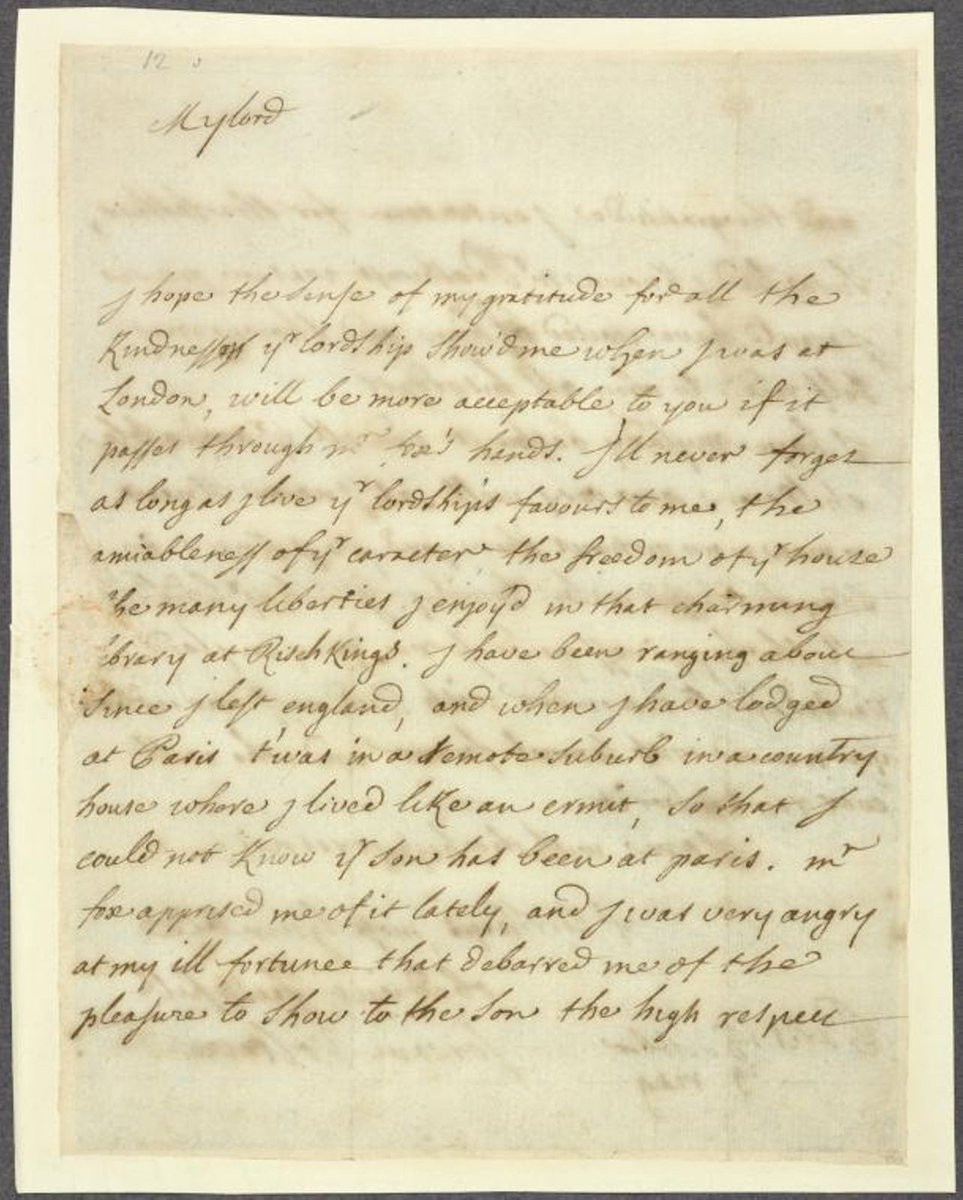 12
Mylord
j hope the sense of my gratitude for all the
Kindness yr lordship show'd me when j was at
London, will be more acceptable to you if it
passes through mr fox's hands. j'll never forget
as long as j live yr lordship's favours to me, the
amiableness of yr caracter the freedom of yr house
the many liberties j enjoy'd in that charming
library at Rischkings. j have been ranging about
since j left england, and when j have lodged
at Paris t'was in a remote suburb in a country
house where j lived like an ermit, so that j
could not Know yr son has been at paris. mr
fox apprised me of it lately, and j was very angry
at my ill fortune that debarred me of the
pleasure to show to the son the high respect